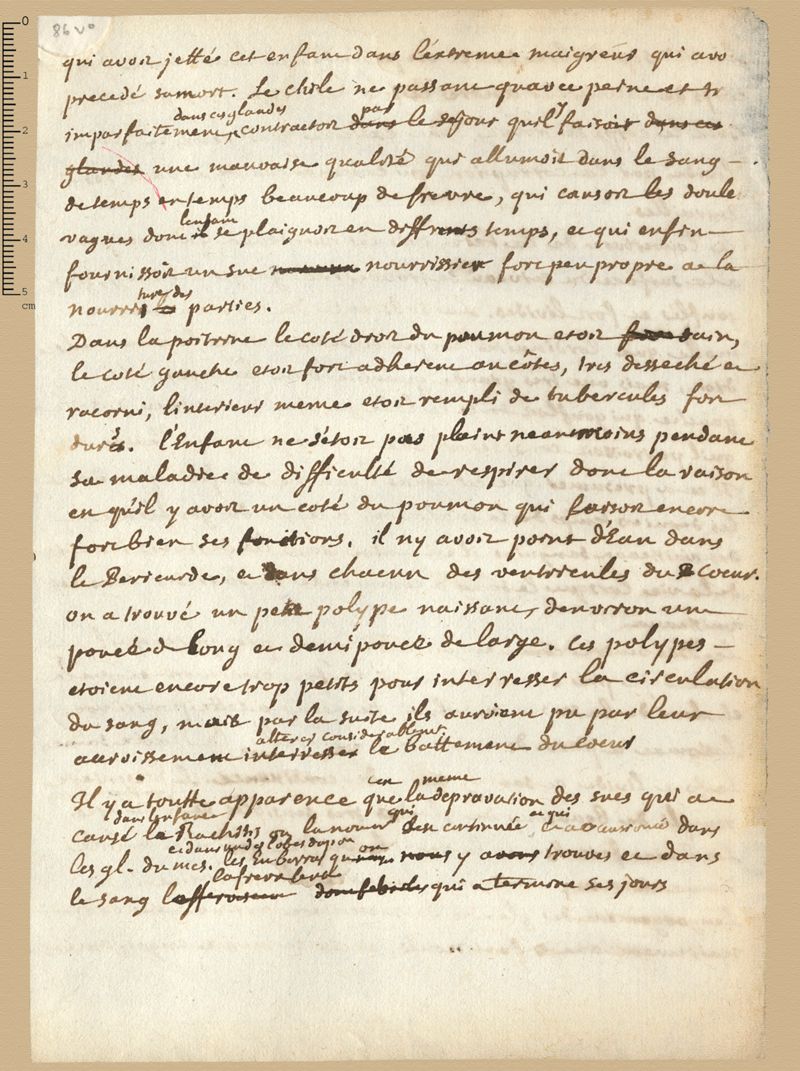 86 v°
qui avoit jetté cet enfant dans l'extreme maigreur qui avo
precedé sa mort. Le chile ne passant qu'avec peine et tr
dans ces glandes par
imparfaitement, contractoit dans le sejour qu'il faisoit dans ces
glandes une mauvaise qualité qui allumoit dans le sang
de temps en temps beaucoup de fievre, qui causoit les doule
l'enfant
vagues dont il se plaignoit en differents temps, et qui enfin
fournissoit un suc nourrissier fort peu propre a la
ture des
nourri parties.
Dans la poitrine le coté droit du poumon etoit sain,
le coté gauche etoit fort adherent au côtes, tres desseché et
racorni, l'interieur meme etoit rempli de tubercules fort
durs. l'Enfant ne s'étoit pas plaint neantmoins pendant
sa maladie de difficulté de respirer dont la raison
en qu'il y avoit un coté du poumon qui faisoit encore
fort bien ses fonctions. il n'y avoit point d'Eau dans
le Pericarde, et dans chacun des ventricules du Coeur.
on a trouvé un petit polype naissant, denviron un
pouce de long et demi pouce de large. Ces polypes
etoient encore trop petits pour interresser la circulation
du sang, mais par la suite ils auroient pu par leur
alterer considerablemt
accroissement interresser le battement du coeur
en meme
Il y a toutte apparence que la depravation des sucs qui a
dans l'enfance qui
causé le Rachitis ou la nouure s'en continuée dans
et dans un des lobes du poumon on
les gl. du mes. les Embarras que nous y avons trouvés et dans
la fievre lente
le sang qui a terminé ses jours